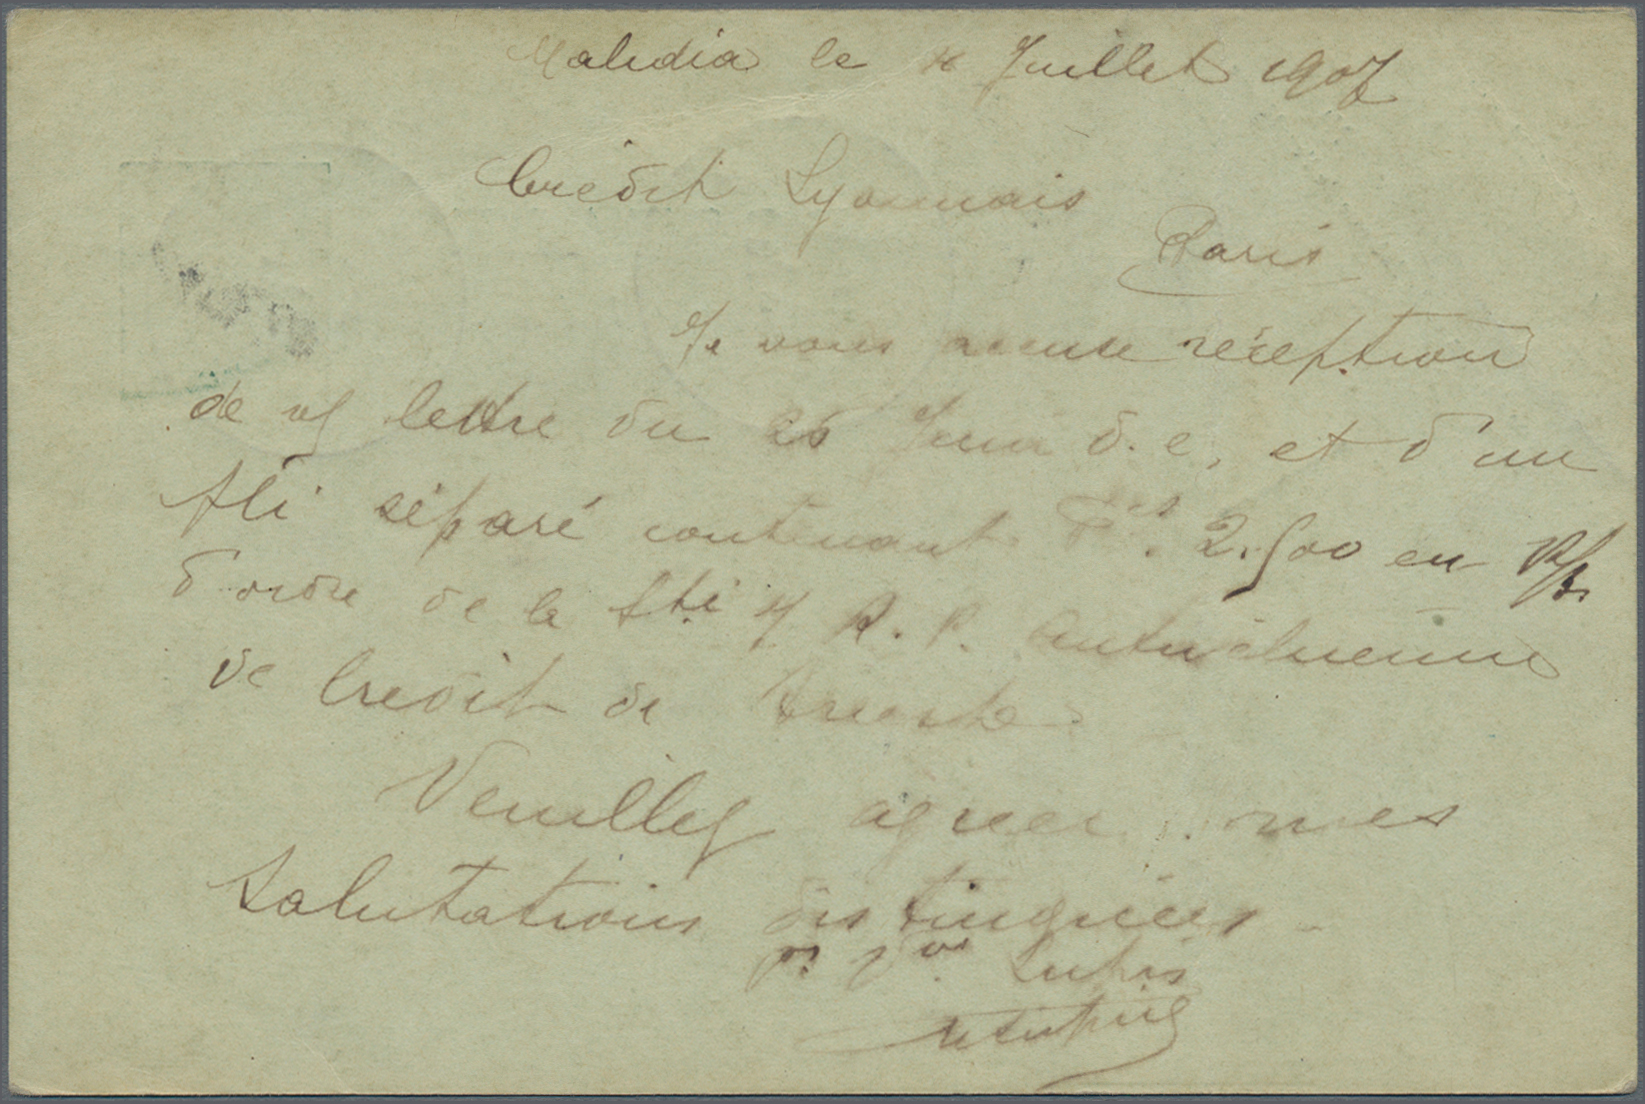 Mahdia le Juillet 1907
Crédit Lyonnais
Paris
Je vous accuse réception
de v/ lettre du 26 Juin d. c, et d'un
pli séparé contenant Frs 2.500 en B/B.
d'ordre de la Sté I/ R. P. Autrichienne
de Crédit de Trieste
Veuillez agréer mes
Salutations distinguées